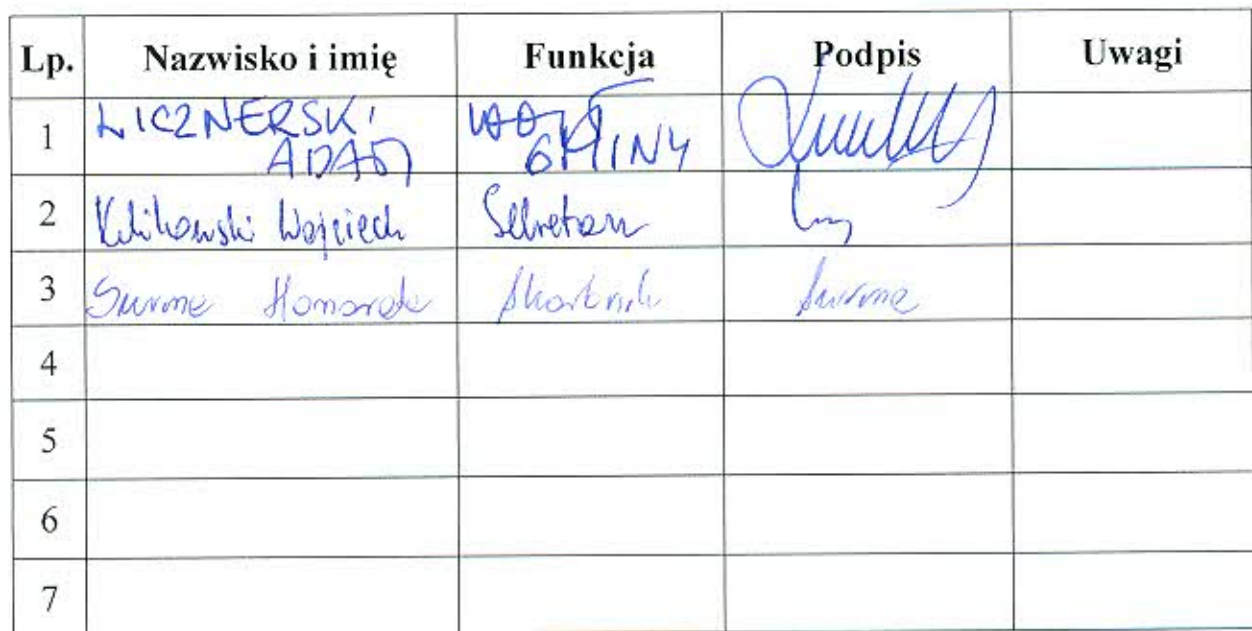 Lp. Nazwisko i imię Funkcja Podpis Uwagi
1 LICZNERSKI ADAM WÓJT GMINY
2 Wojciech Sekretarz
3 Surma Skarbnik Surma
4
5
6
7